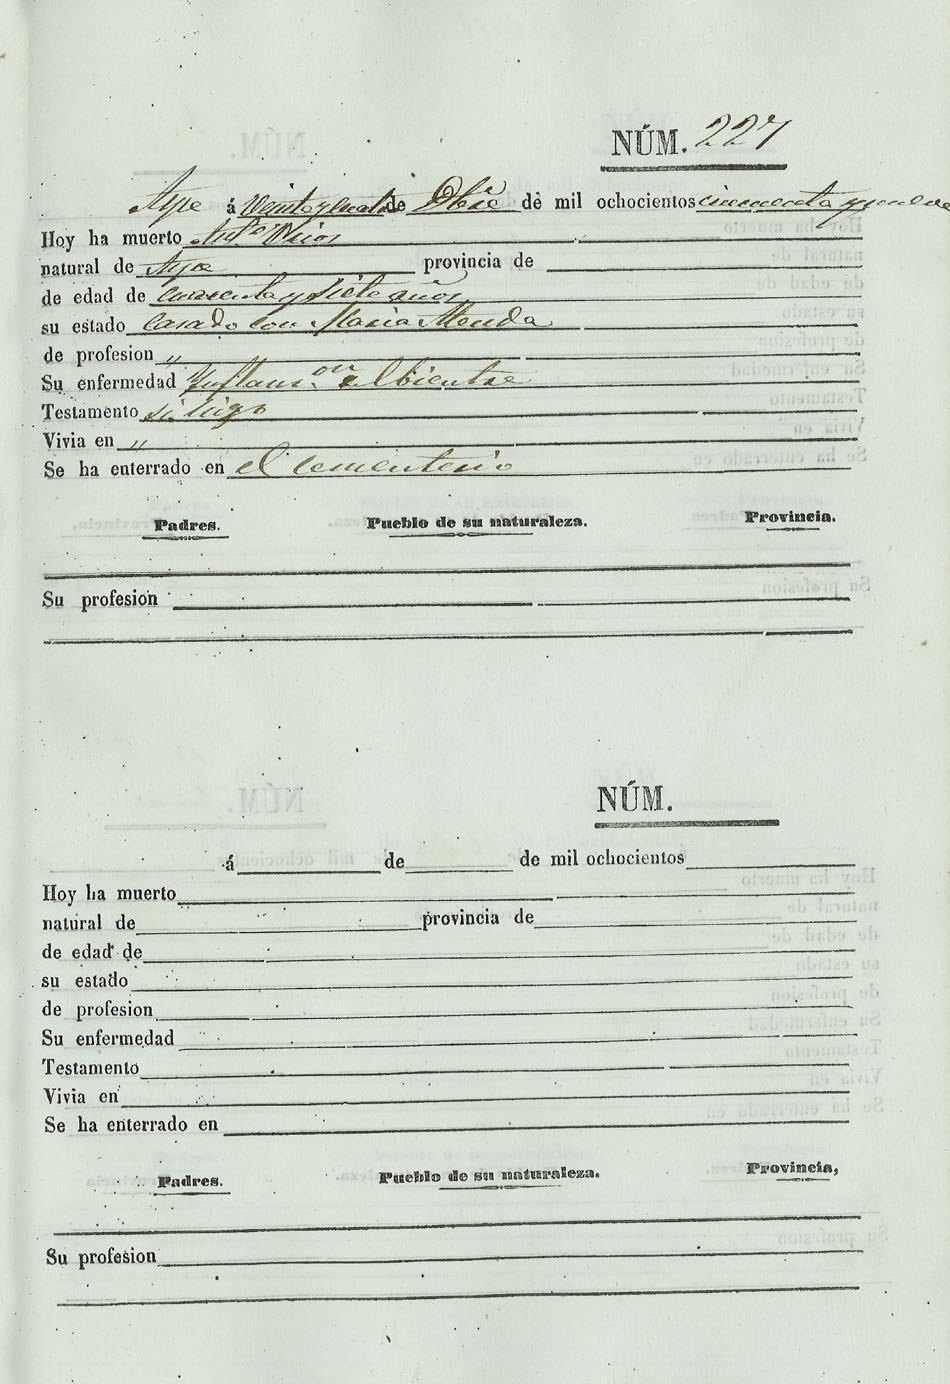 NÚM. 227
Aspe á veinte y cuatro de Dbre de mil ochocientos cincuenta y nueve
Hoy ha muerto Antº
natural de Aspe provincia de
de edad de cuarenta y siete años
su estado Casado con Maria
de profesion "
Su enfermedad
Testamento
Vivia en "
Se ha enterrado en el Cementerio
Padres. Pueblo de su naturaleza. Provincia.
Su profesion
NÚM.
á de de mil ochocientos
Hoy ha muerto
natural de provincia de
de edad de
su estado
de profesion
Su enfermedad
Testamento
Vivia en
Se ha enterrado en
Padres. Pueblo de su naturaleza. Provincia,
Su profesion